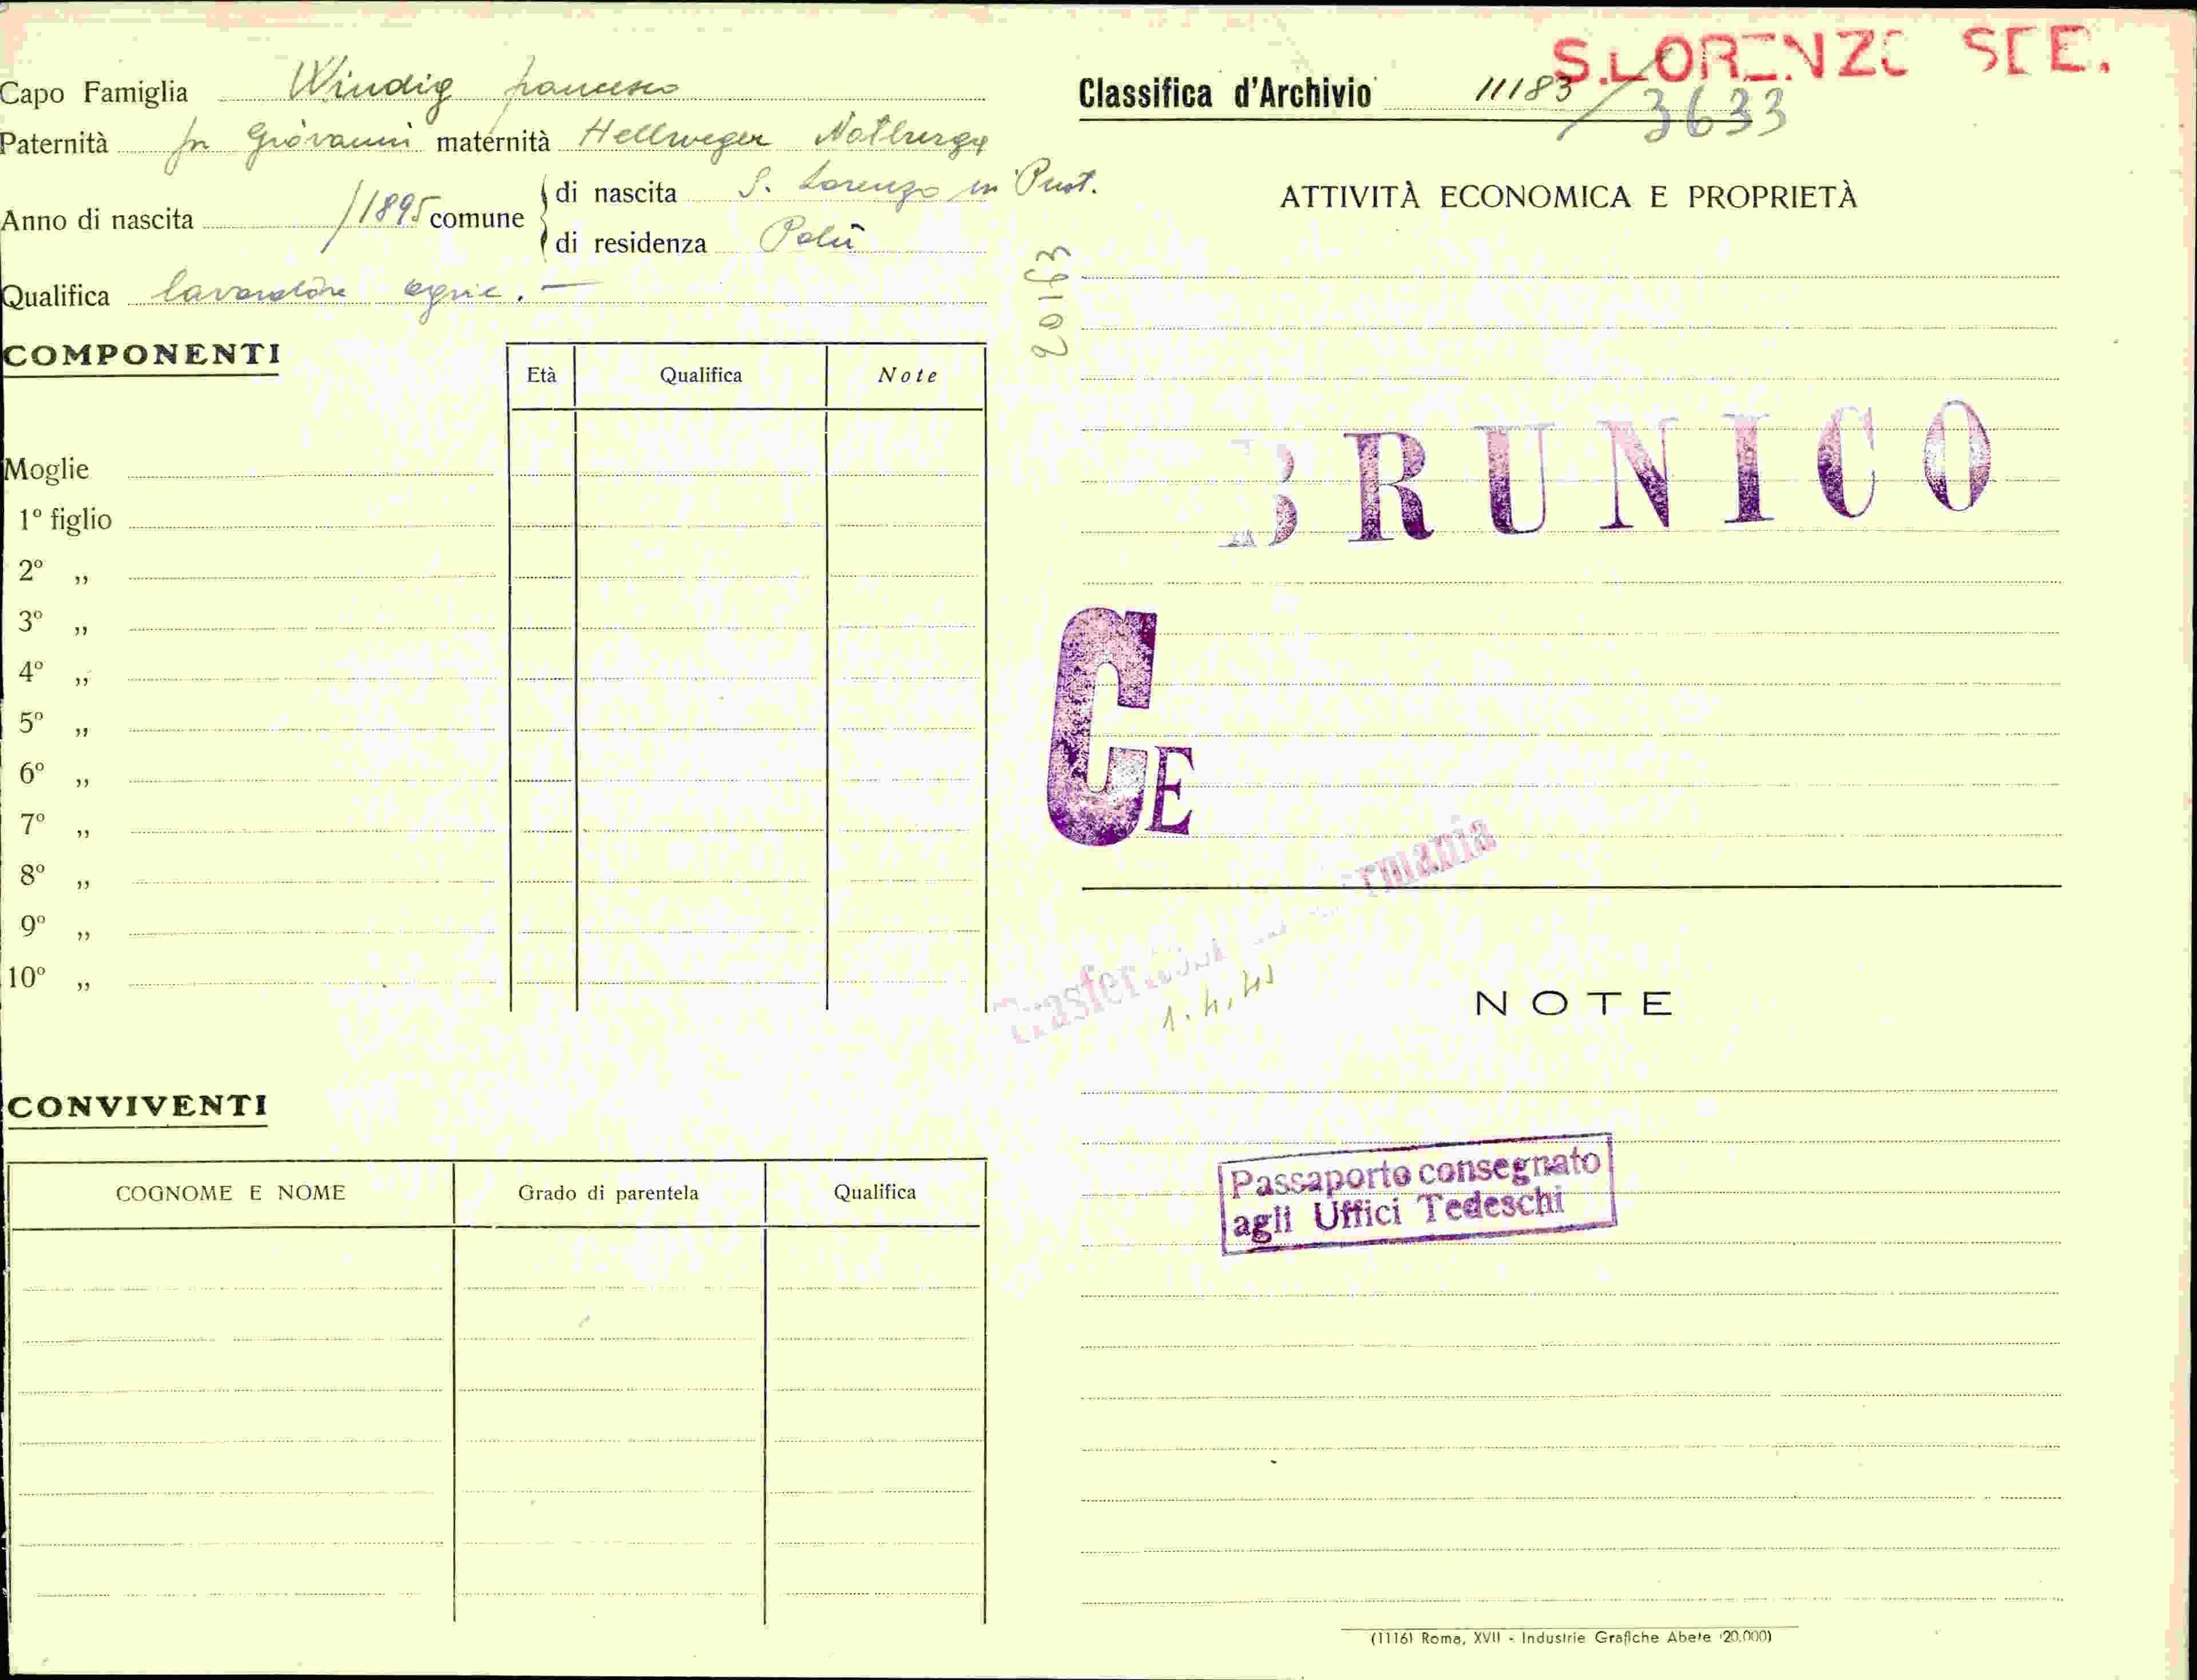 S.LORENZO SEE.
Capo Famiglia Windig francesco
Paternità fu Giovanni maternità Hellweger Notburga
Anno di nascita /1895 comune
di nascita S. Lorenzo in Pust.
di residenza Palù
Qualifica lavoratore agric. —
COMPONENTI
Età Qualifica Note
Moglie
1º figlio
2º „
3º „
4º „
5º „
6º „
7º „
8º „
9º „
10º „
CONVIVENTI
COGNOME E NOME Grado di parentela Qualifica
Classifica d'Archivio 11183 / 3633
20163
ATTIVITÀ ECONOMICA E PROPRIETÀ
BRUNICO
CE
rmania
1.4.41
NOTE
Passaporto consegnato
agli Uffici Tedeschi
(1116) Roma, XVII - Industrie Grafiche Abete (20.000)